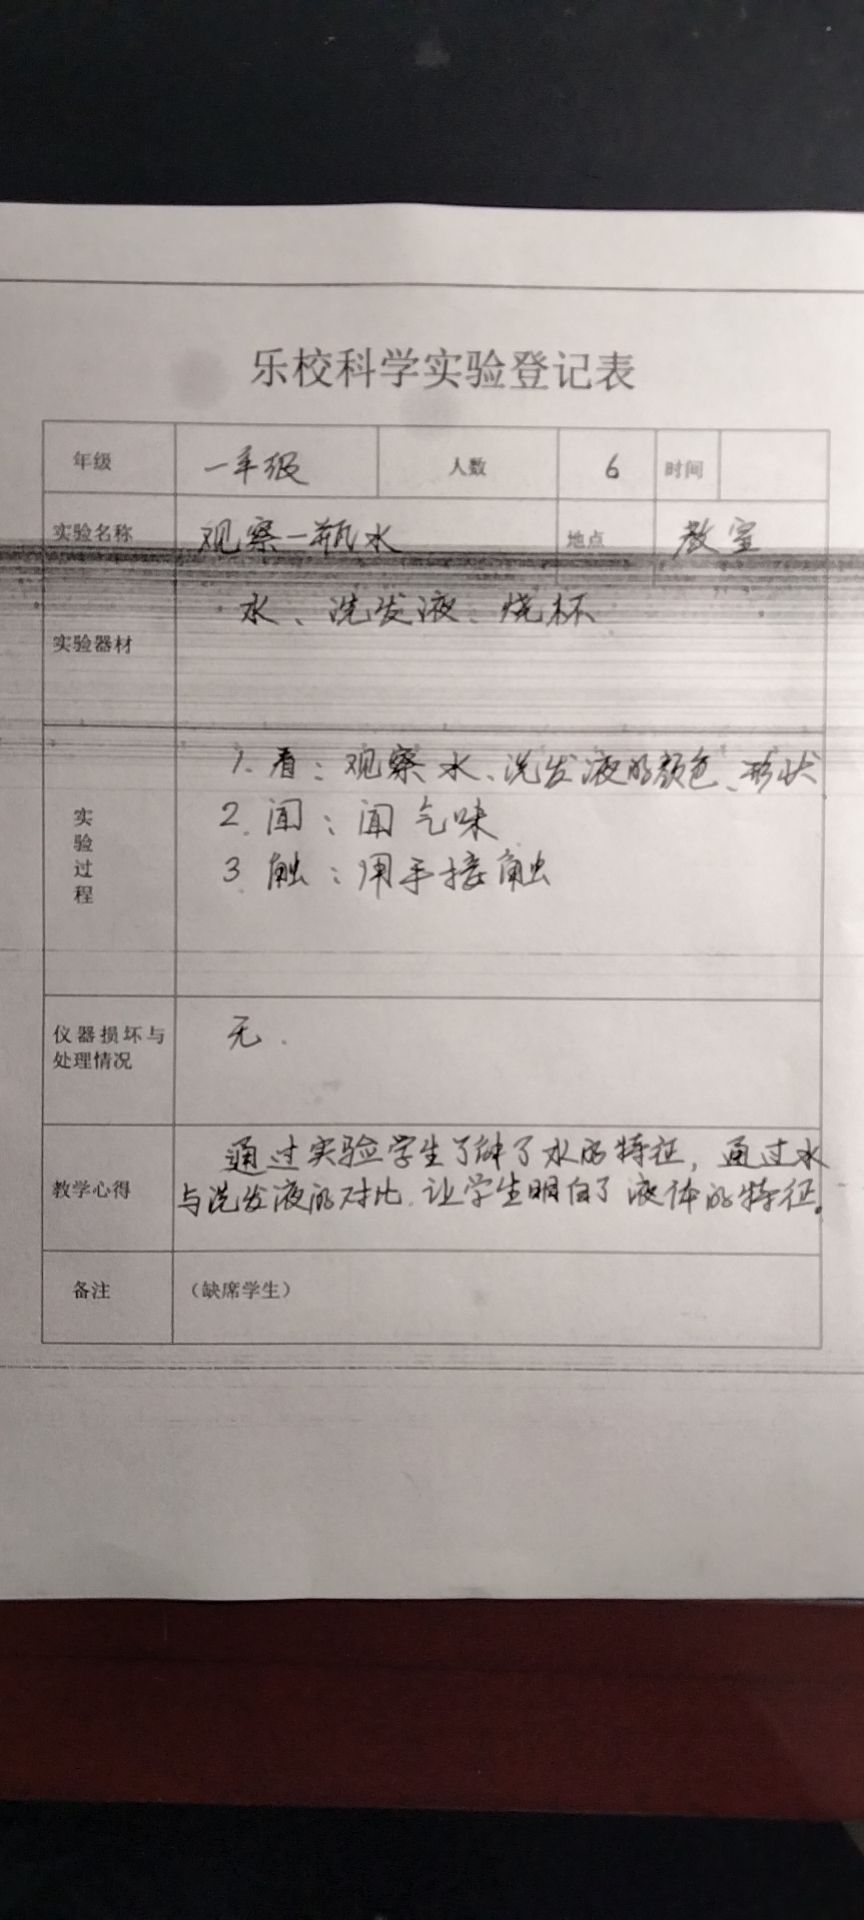 乐校科学实验登记表
年级 一年级 人数 6 时间
实验名称 观察一瓶水 地点 教室
实验器材 水、洗发液、烧杯
实验过程
1. 看：观察水、洗发液的颜色、形状
2. 闻：闻气味
3. 触：用手接触
仪器损坏与
处理情况
无.
教学心得
通过实验学生了解了水的特征，通过水
与洗发液的对比.让学生明白了液体的特征.
备注 （缺席学生）